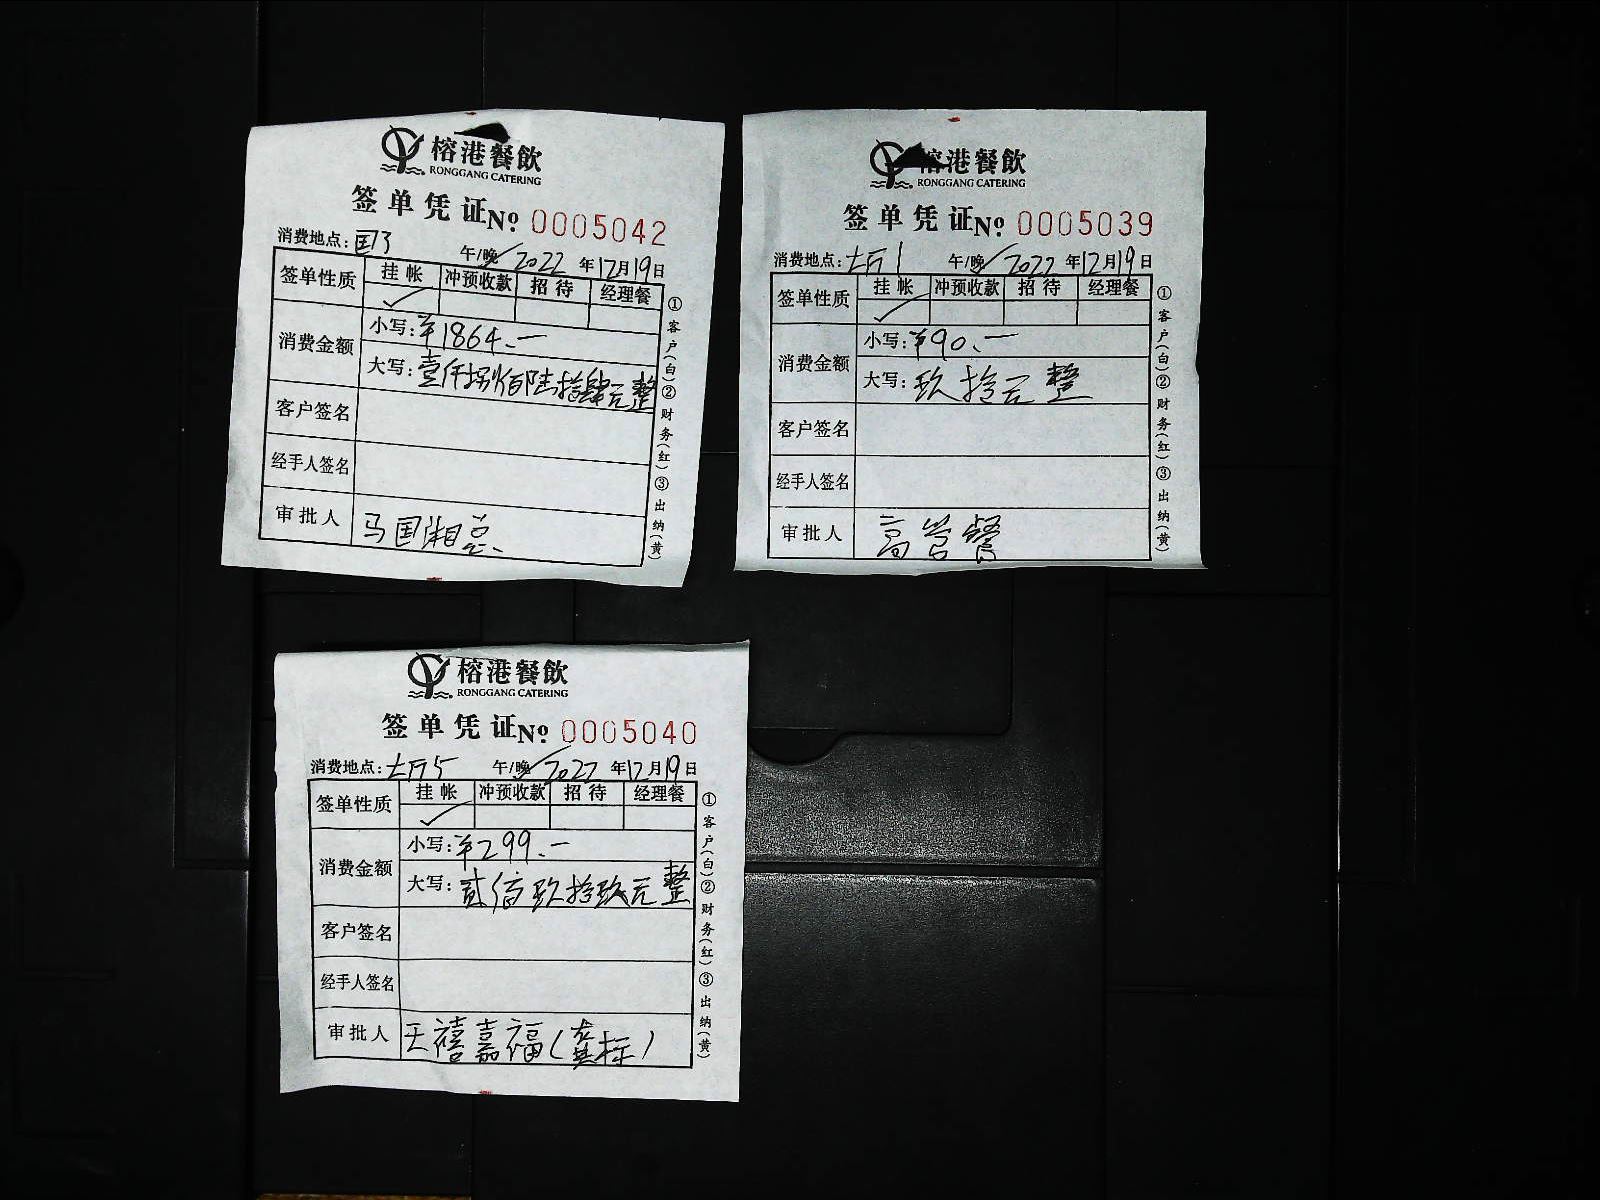 榕港餐飲
RONGGANG CATERING
签单凭证 № 0005042
消费地点: 午/晚 2022 年 12 月 19 日
签单性质 挂帐 冲预收款 招待 经理餐
✓
消费金额 小写: ¥1864.一
大写: 壹仟捌佰陆拾肆元整
客户签名
经手人签名
审批人 马国湘总
①客户(白)②财务(红)③出纳(黄)
榕港餐飲
RONGGANG CATERING
签单凭证 № 0005039
消费地点: 大厅1 午/晚 2022 年 12 月 19 日
签单性质 挂帐 冲预收款 招待 经理餐
✓
消费金额 小写: ¥90.一
大写: 玖拾元整
客户签名
经手人签名
审批人 高
①客户(白)②财务(红)③出纳(黄)
榕港餐飲
RONGGANG CATERING
签单凭证 № 0005040
消费地点: 大厅5 午/晚 2022 年 12 月 19 日
签单性质 挂帐 冲预收款 招待 经理餐
✓
消费金额 小写: ¥299.一
大写: 贰佰玖拾玖元整
客户签名
经手人签名
审批人 天禧嘉福(龚标)
①客户(白)②财务(红)③出纳(黄)